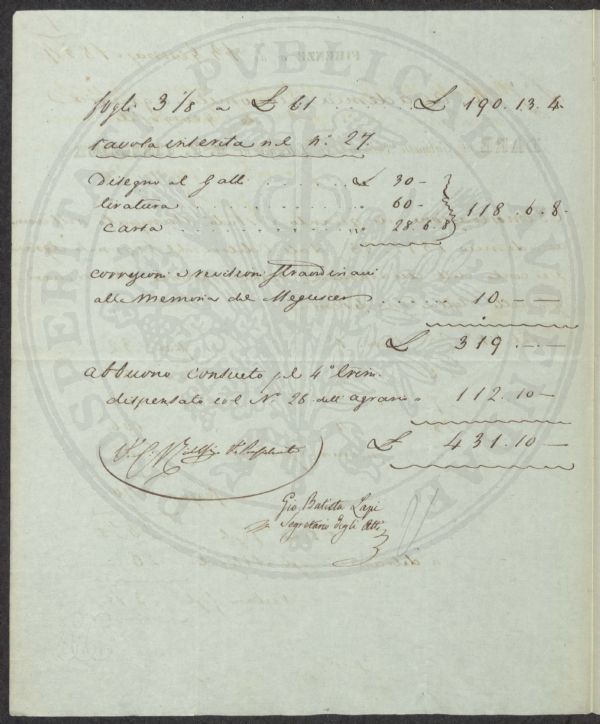 fogli 3 1/8 a £ 61 . . . . . . £ 190.13.4
tavola inserita nel n.° 27.
Disegno al Galli . . . . . . . £ 30 -
tiratura . . . . . . . . . . . . 60 -
carta . . . . . . . . . . . . . 28.6.8 118.6.8 -
correzioni e revisioni straordinarie
alla Memoria del . . . . 10 - -
£ 319 . - . -
abbuono consueto pel 4° trim.
dispensato col N.° 26 dell' agrario 112.10 -
£ 431.10 -
Gio. Batista Lapi
Segretario degli Atti
PROSPERITATI PVBLICAE AVGENDAE
FIRENZE